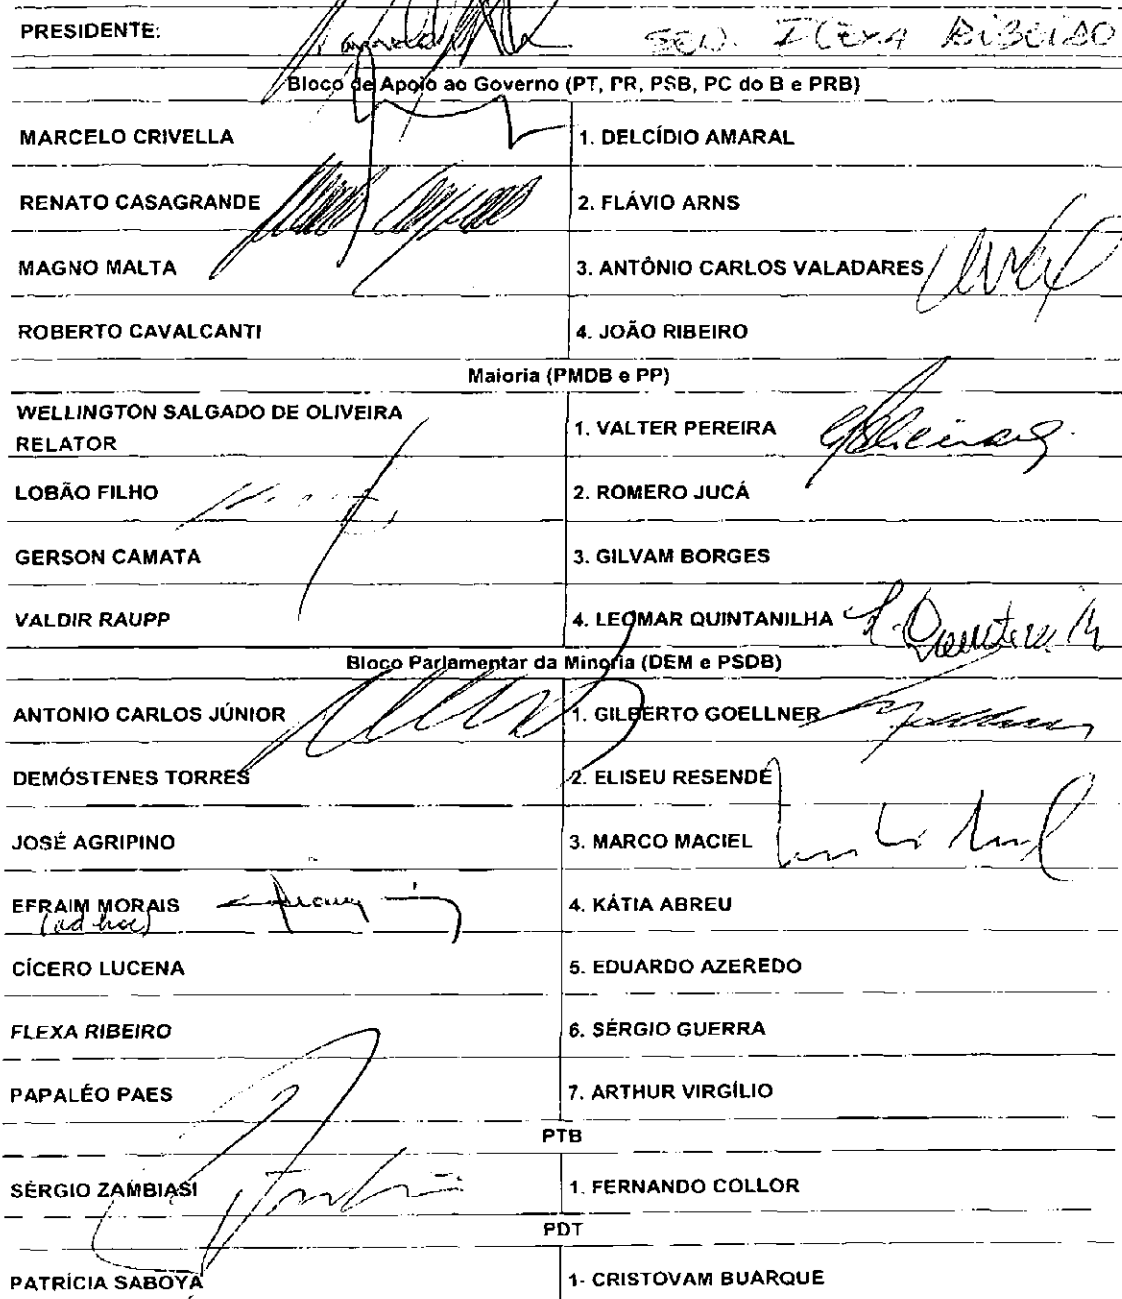 PRESIDENTE: SEN. FLEXA RIBEIRO
Bloco de Apoio ao Governo (PT, PR, PSB, PC do B e PRB)
MARCELO CRIVELLA 1. DELCÍDIO AMARAL
RENATO CASAGRANDE 2. FLÁVIO ARNS
MAGNO MALTA 3. ANTÔNIO CARLOS VALADARES
ROBERTO CAVALCANTI 4. JOÃO RIBEIRO
Maioria (PMDB e PP)
WELLINGTON SALGADO DE OLIVEIRA
RELATOR 1. VALTER PEREIRA
LOBÃO FILHO 2. ROMERO JUCÁ
GERSON CAMATA 3. GILVAM BORGES
VALDIR RAUPP 4. LEOMAR QUINTANILHA
Bloco Parlamentar da Minoria (DEM e PSDB)
ANTONIO CARLOS JÚNIOR 1. GILBERTO GOELLNER
DEMÓSTENES TORRES 2. ELISEU RESENDE
JOSÉ AGRIPINO 3. MARCO MACIEL
EFRAIM MORAIS 4. KÁTIA ABREU
(ad hoc)
CÍCERO LUCENA 5. EDUARDO AZEREDO
FLEXA RIBEIRO 6. SÉRGIO GUERRA
PAPALÉO PAES 7. ARTHUR VIRGÍLIO
PTB
SÉRGIO ZAMBIASI 1. FERNANDO COLLOR
PDT
PATRÍCIA SABOYA 1- CRISTOVAM BUARQUE